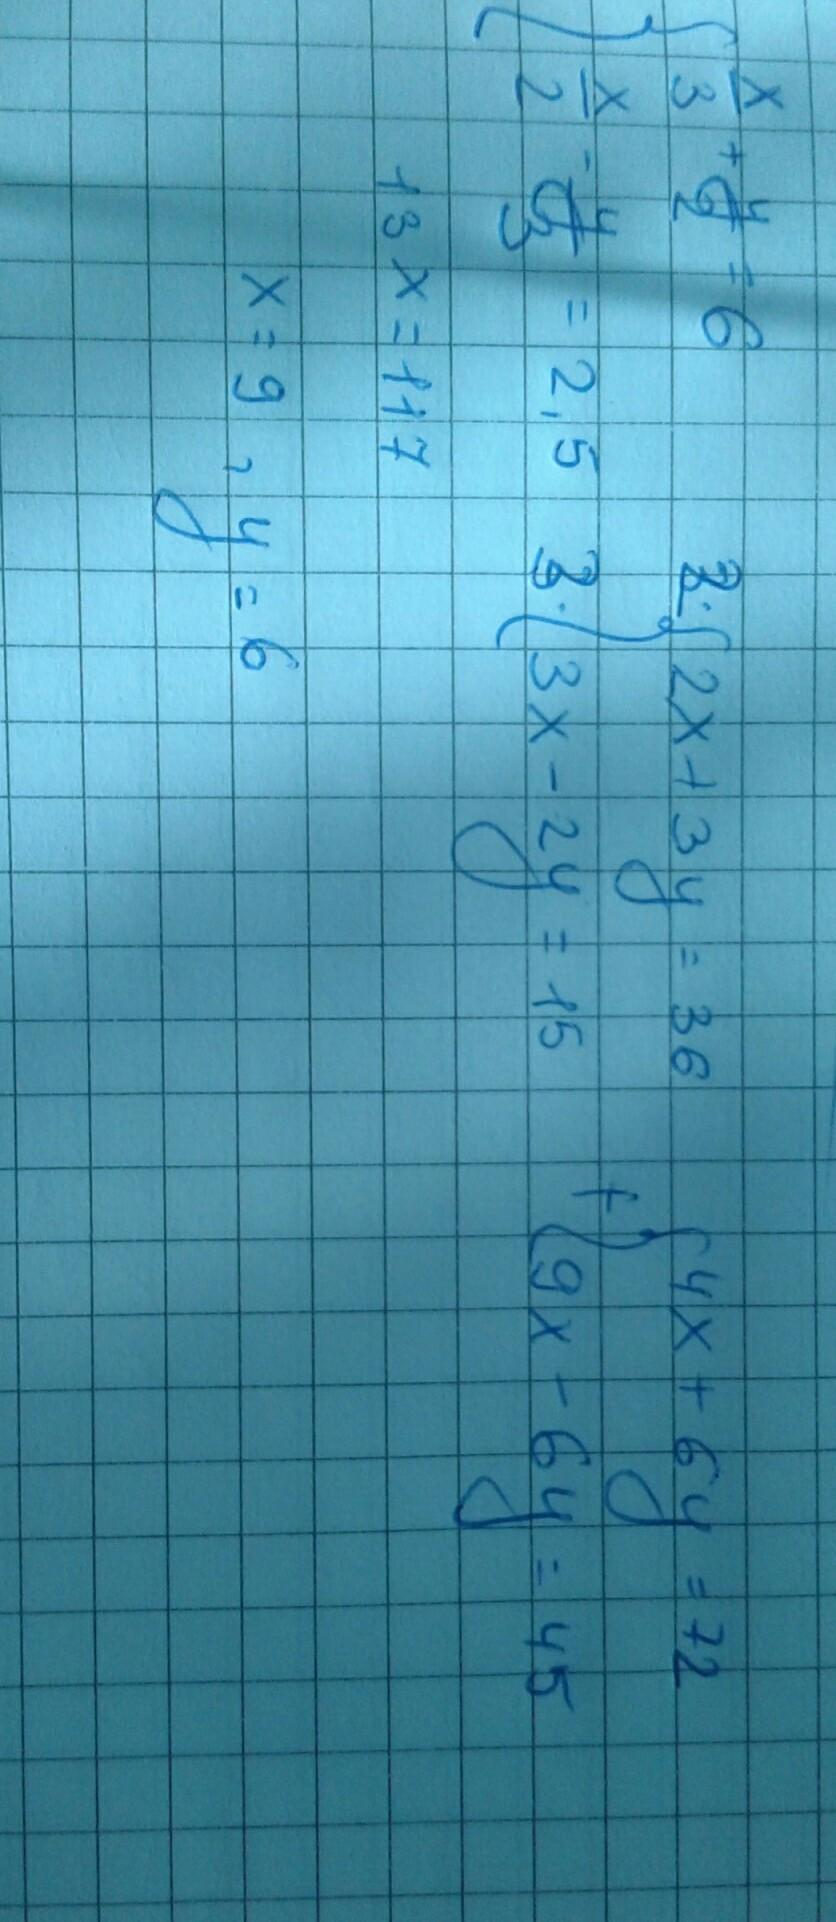 { x/3 + y/2 = 6    2·{ 2x + 3y = 36    { 4x + 6y = 72
{ x/2 - y/3 = 2,5    3·{ 3x - 2y = 15    + { 9x - 6y = 45
13x = 117
x = 9, y = 6